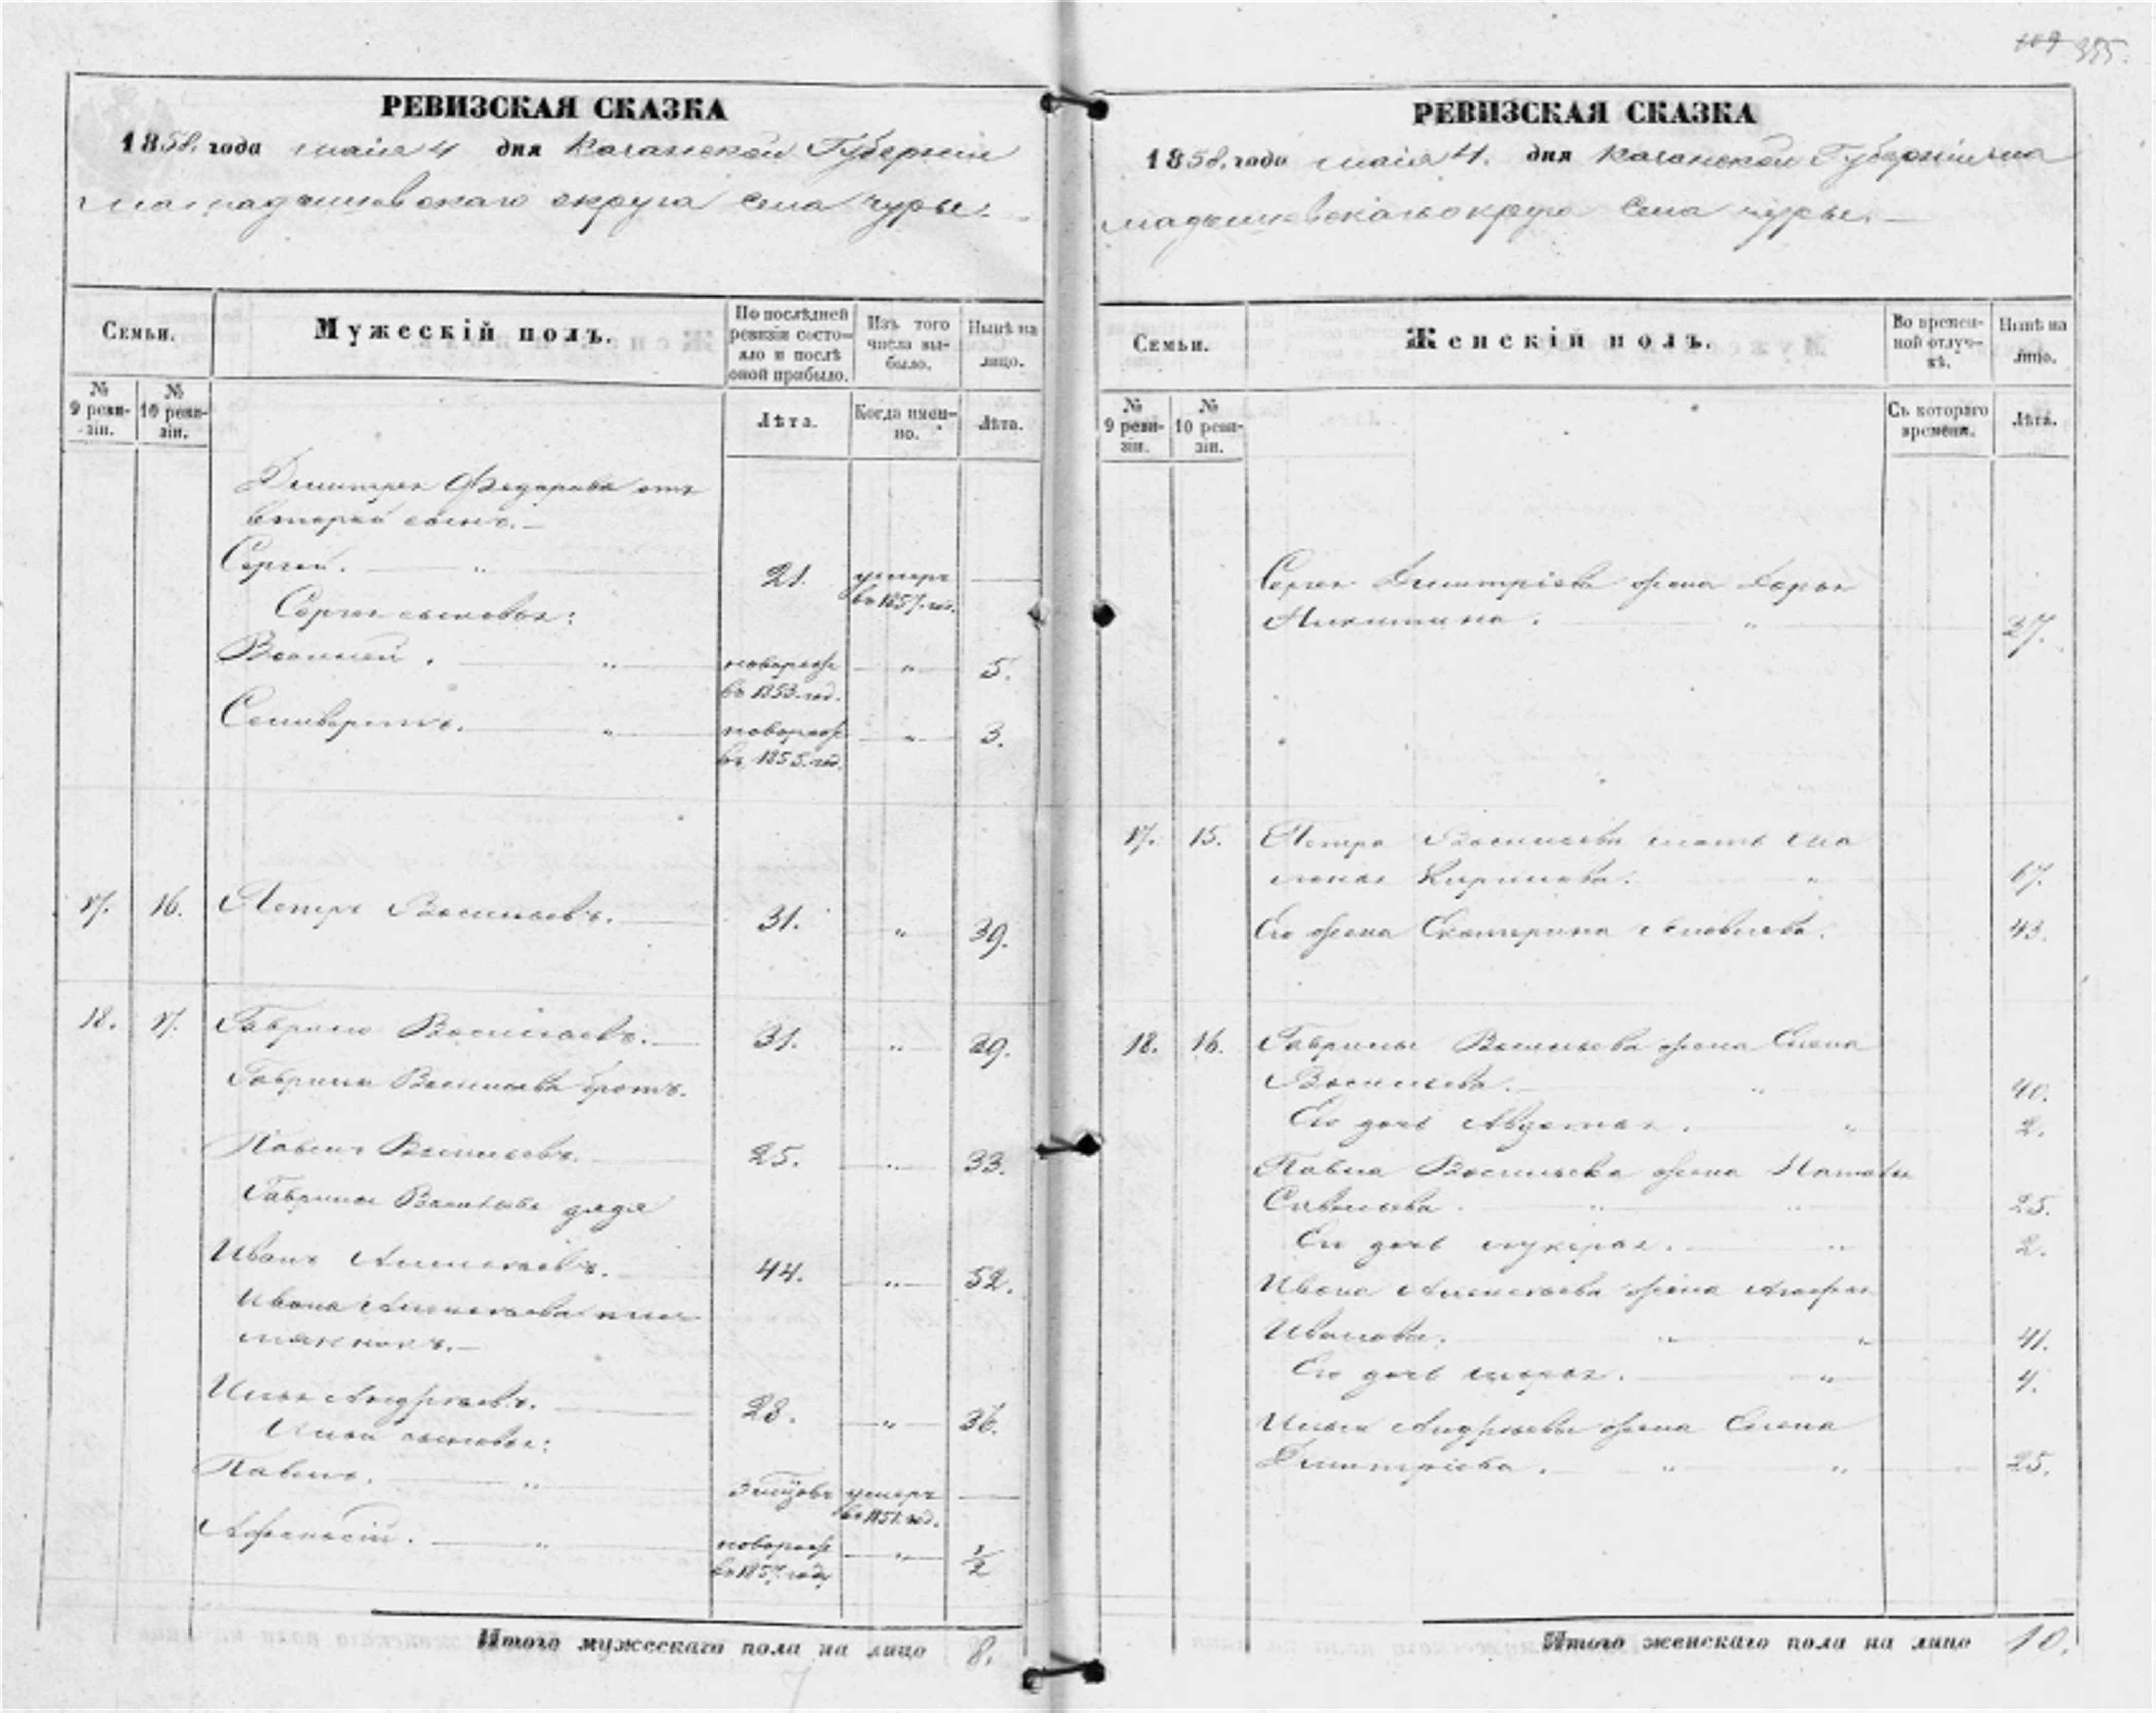 355.
РЕВИЗСКАЯ СКАЗКА
1858. года маія 4 дня Казанской Губерніи
мамадышевскаго округа села чуры.
Семьи.
Мужескій полъ.
По послѣдней ревизіи состояло и послѣ оной прибыло.
Изъ того числа выбыло.
Нынѣ на лицо.
№ 9 ревизіи.
№ 10 ревизіи.
Лѣта.
Когда именно.
Лѣта.
Дмитрея Федорова отъ
второй
Сергей. 21. умеръ в 1857. год.
Сергея сыновья:
Василей. новорож въ 1853. год. 5.
новорож въ 1855. год. 3.
17. 16. Петръ Васильевъ. 31. " 39.
18. 17. Гаврило Васильевъ. 31. " 39.
Гаврилы Васильева братъ.
Павелъ Васильевъ. 25. " 33.
Гаврилы Васильева дядя
Иванъ Алексѣевъ. 44. " 52.
Ивана Алексѣева пле
мянникъ.
Илья Андреевъ. 28. " 36.
Ильи сыновья:
Павелъ. умеръ в 1851. год.
Афанасій. новорож в 1857. году " 1/2
Итого мужескаго пола на лицо 8.
РЕВИЗСКАЯ СКАЗКА
1858. года маія 4. дня Казанской Губерніи ма
мадышевскаго округа села чуры.
Семьи.
Женскій полъ.
Во временной отлучкѣ.
Нынѣ на лицо.
№ 9 ревизіи.
№ 10 ревизіи.
Съ котораго времени.
Лѣта.
Сергея Дмитріева жена Дарья
Никитина. " 27.
17. 15. Петра Васильева мать
Кирилова. " 67.
Его жена Екатерина 43.
18. 16. Гаврилы Васильева жена Елена
Васильева. " 40.
Его дочь Авдотья. " 2.
Павла Васильева жена Наталья
Савельева. " " 25.
Его дочь " 2.
Ивана Алексѣева жена
Иванова. " " 41.
Его дочь " 4.
Ильи Андреева жена Елена
Дмитріева. " " 25.
Итого женскаго пола на лицо 10.